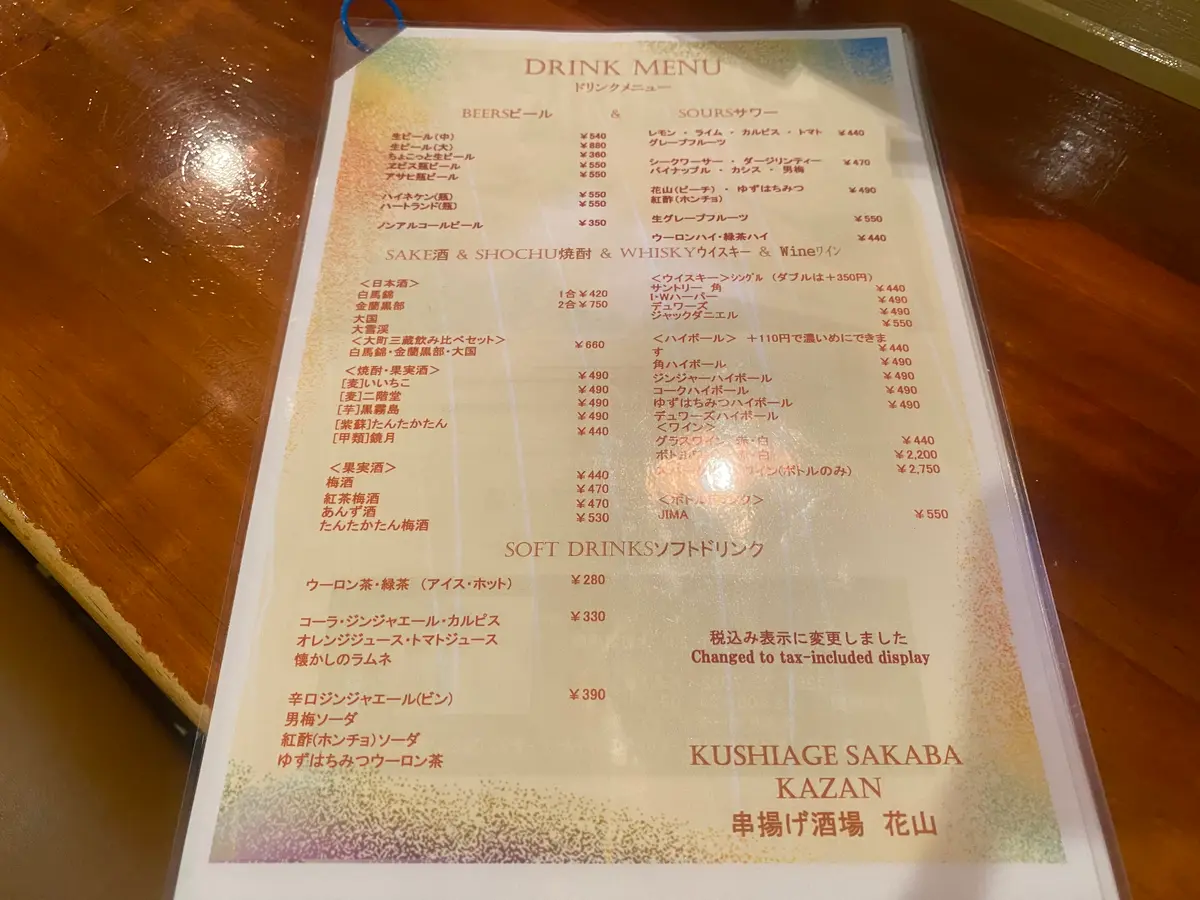 DRINK MENU
ドリンクメニュー
BEERSビール & SOURSサワー
生ビール(中) ¥540
生ビール(大) ¥880
ちょこっと生ビール ¥360
ヱビス瓶ビール ¥550
アサヒ瓶ビール ¥550
ハイネケン(瓶) ¥550
ハートランド(瓶) ¥550
ノンアルコールビール ¥350
レモン ・ ライム ・ カルピス ・ トマト ¥440
グレープフルーツ
シークワーサー ・ ダージリンティー ¥470
パイナップル ・ カシス ・ 男梅
花山(ピーチ) ・ ゆずはちみつ ¥490
紅酢(ホンチョ)
生グレープフルーツ ¥550
ウーロンハイ・緑茶ハイ ¥440
SAKE酒 & SHOCHU焼酎 & WHISKYウイスキー & Wineワイン
<日本酒>
白馬錦 1合¥420
金蘭黒部 2合¥750
大国
大雪渓
<大町三蔵飲み比べセット>
白馬錦・金蘭黒部・大国 ¥660
<焼酎・果実酒>
[麦]いいちこ ¥490
[麦]二階堂 ¥490
[芋]黒霧島 ¥490
[紫蘇]たんたかたん ¥490
[甲類]鏡月 ¥440
<果実酒>
梅酒 ¥440
紅茶梅酒 ¥470
あんず酒 ¥470
たんたかたん梅酒 ¥530
<ウイスキー>シングル (ダブルは+350円)
サントリー 角 ¥440
I・Wハーパー ¥490
デュワーズ ¥490
ジャックダニエル ¥550
<ハイボール> +110円で濃いめにできま
す ¥440
角ハイボール ¥490
ジンジャーハイボール ¥490
コークハイボール ¥490
ゆずはちみつハイボール ¥490
デュワーズハイボール
<ワイン>
グラスワイン 赤・白 ¥440
ボトルワ ・白 ¥2,200
スパークリングワイン(ボトルのみ) ¥2,750
<ボトルドリンク>
JIMA ¥550
SOFT DRINKSソフトドリンク
ウーロン茶・緑茶 (アイス・ホット) ¥280
コーラ・ジンジャエール・カルピス ¥330
オレンジジュース・トマトジュース
懐かしのラムネ
辛口ジンジャエール(ビン) ¥390
男梅ソーダ
紅酢(ホンチョ)ソーダ
ゆずはちみつウーロン茶
税込み表示に変更しました
Changed to tax-included display
KUSHIAGE SAKABA
KAZAN
串揚げ酒場 花山